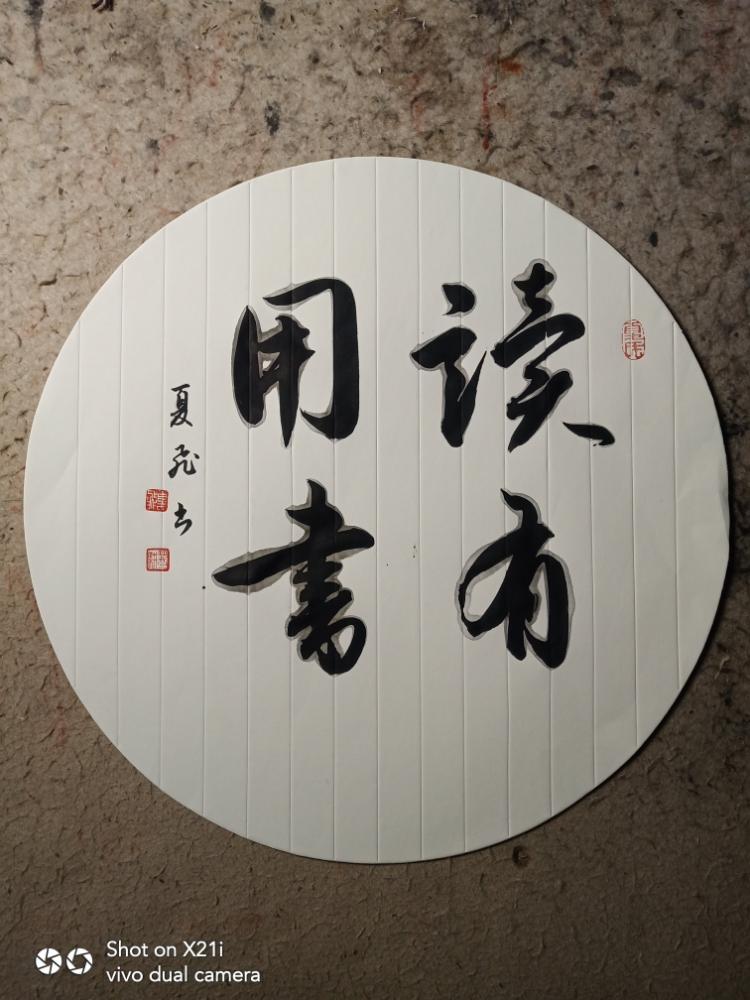 读有
用书
夏飛书
Shot on X21i
vivo dual camera